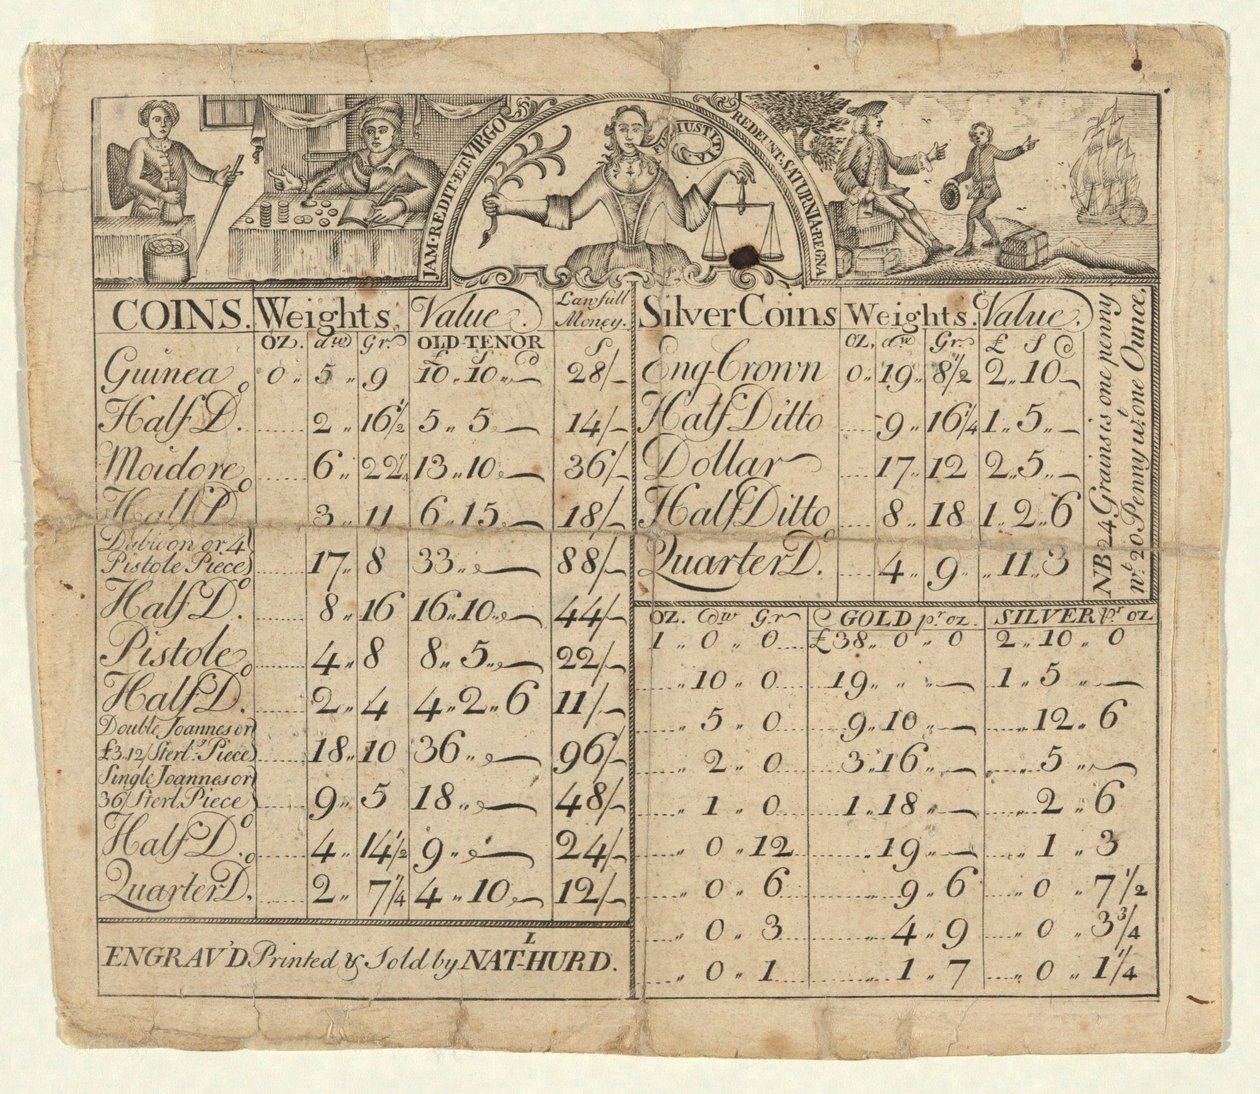 JAM·REDIT·ET·VIRGO
IUSTITIA
REDEUNT·SATURNIA·REGNA
COINS. Weights. Value. Lawfull Money.
OZ. dw Gr. OLD TENOR £ S d S
Guinea 0 „ 5 „ 9 10 „ 10 „ — 28/—
Half Do. 2 „ 16½ 5 „ 5 — 14/—
Moidore 6 „ 22¼ 13 „ 10 — 36/—
Half Do 3 „ 11 6 „ 15 „ — 18/—
Dubloon or 4
Pistole Piece 17 „ 8 33 „ — 88/—
Half Do. 8 „ 16 16 „ 10 „ — 44/—
Pistole 4 „ 8 8 „ 5 „ — 22/—
Half Do. 2 „ 4 4 „ 2 „ 6 11/—
Double Joannes or
£3.12/Sterl.g Piece 18 „ 10 36 „ — 96/—
Single Joannes or
36/Sterl. Piece 9 „ 5 18 „ — 48/—
Half Do. 4 „ 14½ 9 „ — 24/—
Quarter Do. 2 „ 7¼ 4 „ 10 „ — 12/—
ENGRAV'D Printed & Sold by NATL HURD.
Silver Coins Weights. Value.
OZ, dw Gr. £ S d
Eng Crown 0 „ 19 „ 8½ 2 „ 10 —
Half Ditto 9 „ 16¼ 1 „ 5 „ —
Dollar 17 „ 12 2 „ 5 „ —
Half Ditto 8 „ 18 1 „ 2 „ 6
Quarter Do. 4 „ 9 „ 11 „ 3
NB 24 Grains is one penny
wt. 20 Penny wt. one Ounce.
OZ. dw Gr GOLD pr oz. SILVER pr oz
1 „ 0 „ 0 £38 „ 0 „ 0 2 „ 10 „ 0
„ 10 „ 0 19 „ „ — 1 „ 5 „ —
„ 5 „ 0 9 „ 10 „ — „ 12 „ 6
„ 2 „ 0 3 „ 16 „ — „ 5 „ —
„ 1 „ 0 1 „ 18 „ — „ 2 „ 6
„ 0 „ 12 „ 19 „ — „ 1 „ 3
„ 0 „ 6 „ 9 „ 6 „ 0 „ 7½
„ 0 „ 3 „ 4 „ 9 „ 0 „ 3¾
„ 0 „ 1 „ 1 „ 7 „ 0 „ 1¼